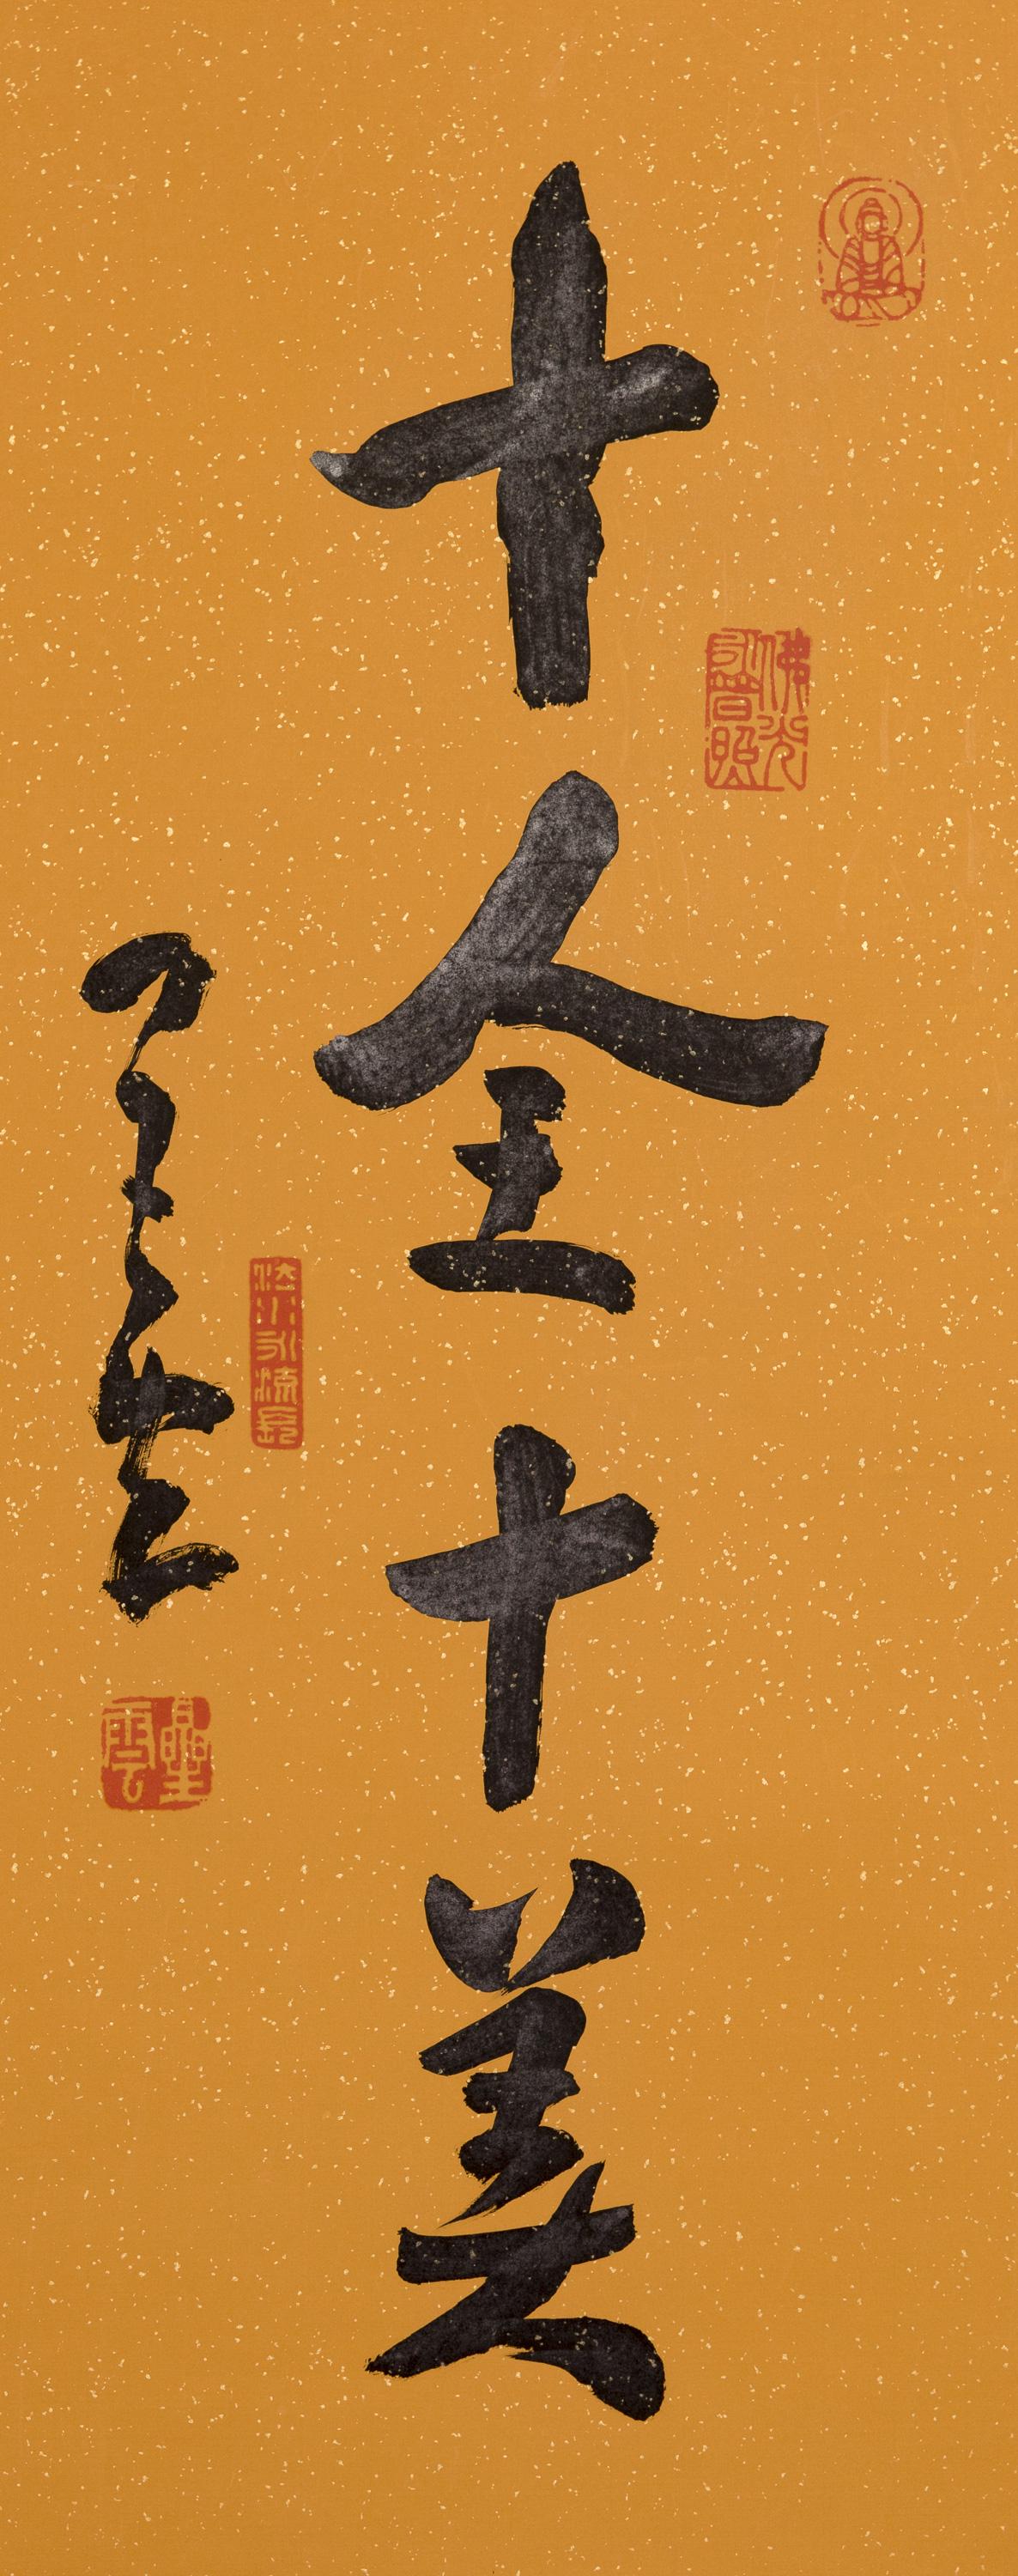 十全十美
佛光
永普照
法水永流長
星雲
星雲